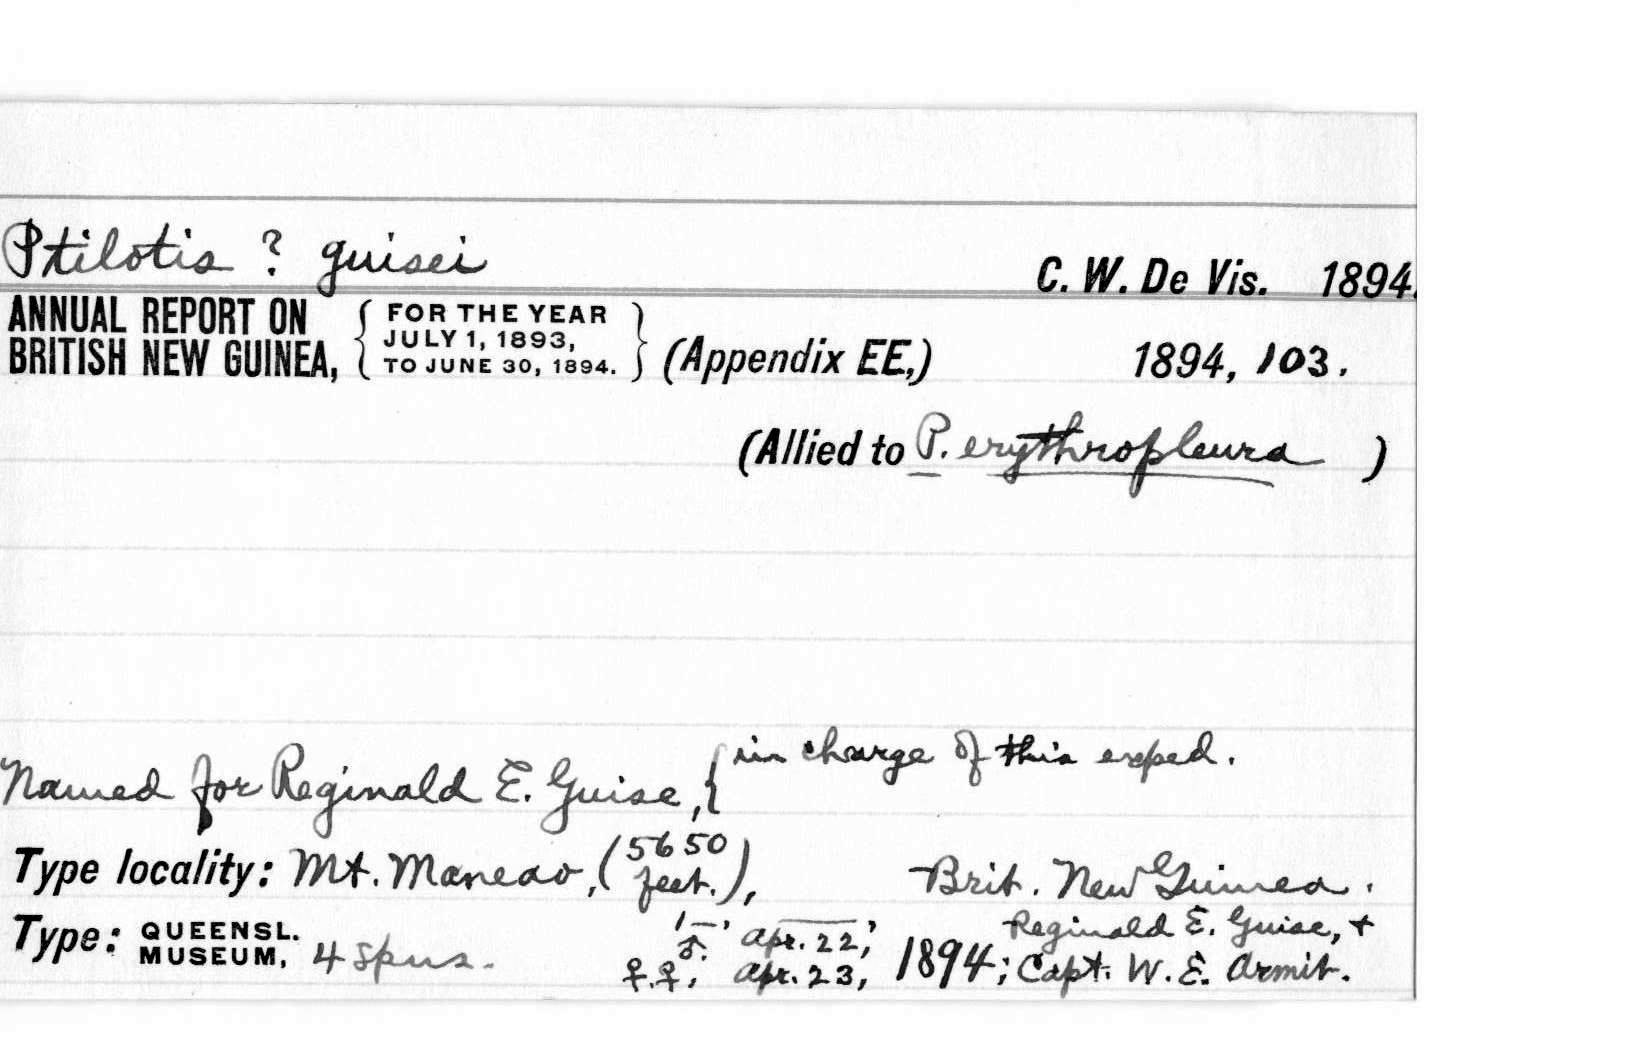 Ptilotis ? guisei
C. W. De Vis. 1894.
ANNUAL REPORT ON
BRITISH NEW GUINEA,
{ FOR THE YEAR
JULY 1, 1893,
TO JUNE 30, 1894. }
(Appendix EE,) 1894, 103.
(Allied to P. erythropleura )
Named for Reginald E. Guise, { in charge of this exped.
Type locality: Mt. Maneao, (5650 feet.), Brit. New Guinea.
Type: QUEENSL. MUSEUM, 4 spns.
♂. Apr. 22,
♀.♀, Apr. 23, 1894;
Reginald E. Guise, +
Capt. W. E. Armit.